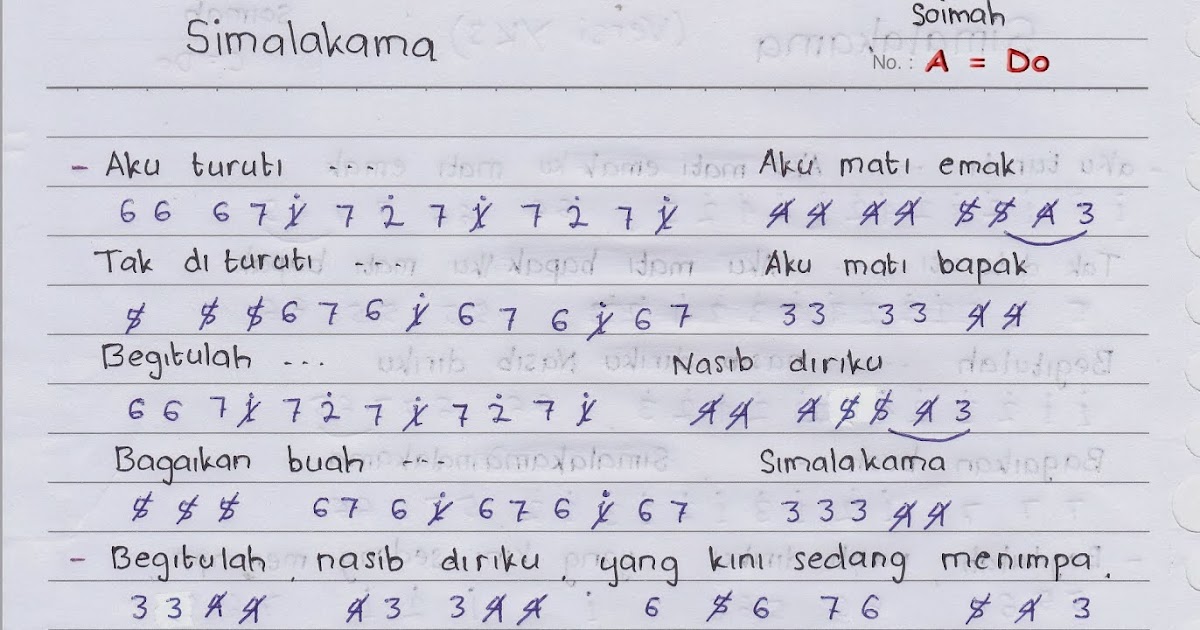 Soimah
Simalakama
No. : A = Do
- Aku turuti .... Aku mati emak
6 6 6 7 1̸̇ 7 2̇ 7 1̸̇ 7 2̇ 7 1̸̇ 4̸ 4̸ 4̸ 4̸ 5̸ 5̸ 4̸ 3
Tak di turuti ... Aku mati bapak
5̸ 5̸ 5̸ 6 7 6 1̸̇ 6 7 6 1̸̇ 6 7 3 3 3 3 4̸ 4̸
Begitulah ... Nasib diriku
6 6 7 1̸̇ 7 2̇ 7 1̸̇ 7 2̇ 7 1̸̇ 4̸ 4̸ 4̸ 5̸ 5̸ 4̸ 3
Bagaikan buah .... Simalakama
5̸ 5̸ 5̸ 6 7 6 1̸̇ 6 7 6 1̸̇ 6 7 3 3 3 4̸ 4̸
- Begitulah, nasib diriku, yang kini sedang menimpa.
3 3 4̸ 4̸ 4̸ 3 3 4̸ 4̸ 6 5̸ 6 7 6 5̸ 4̸ 3